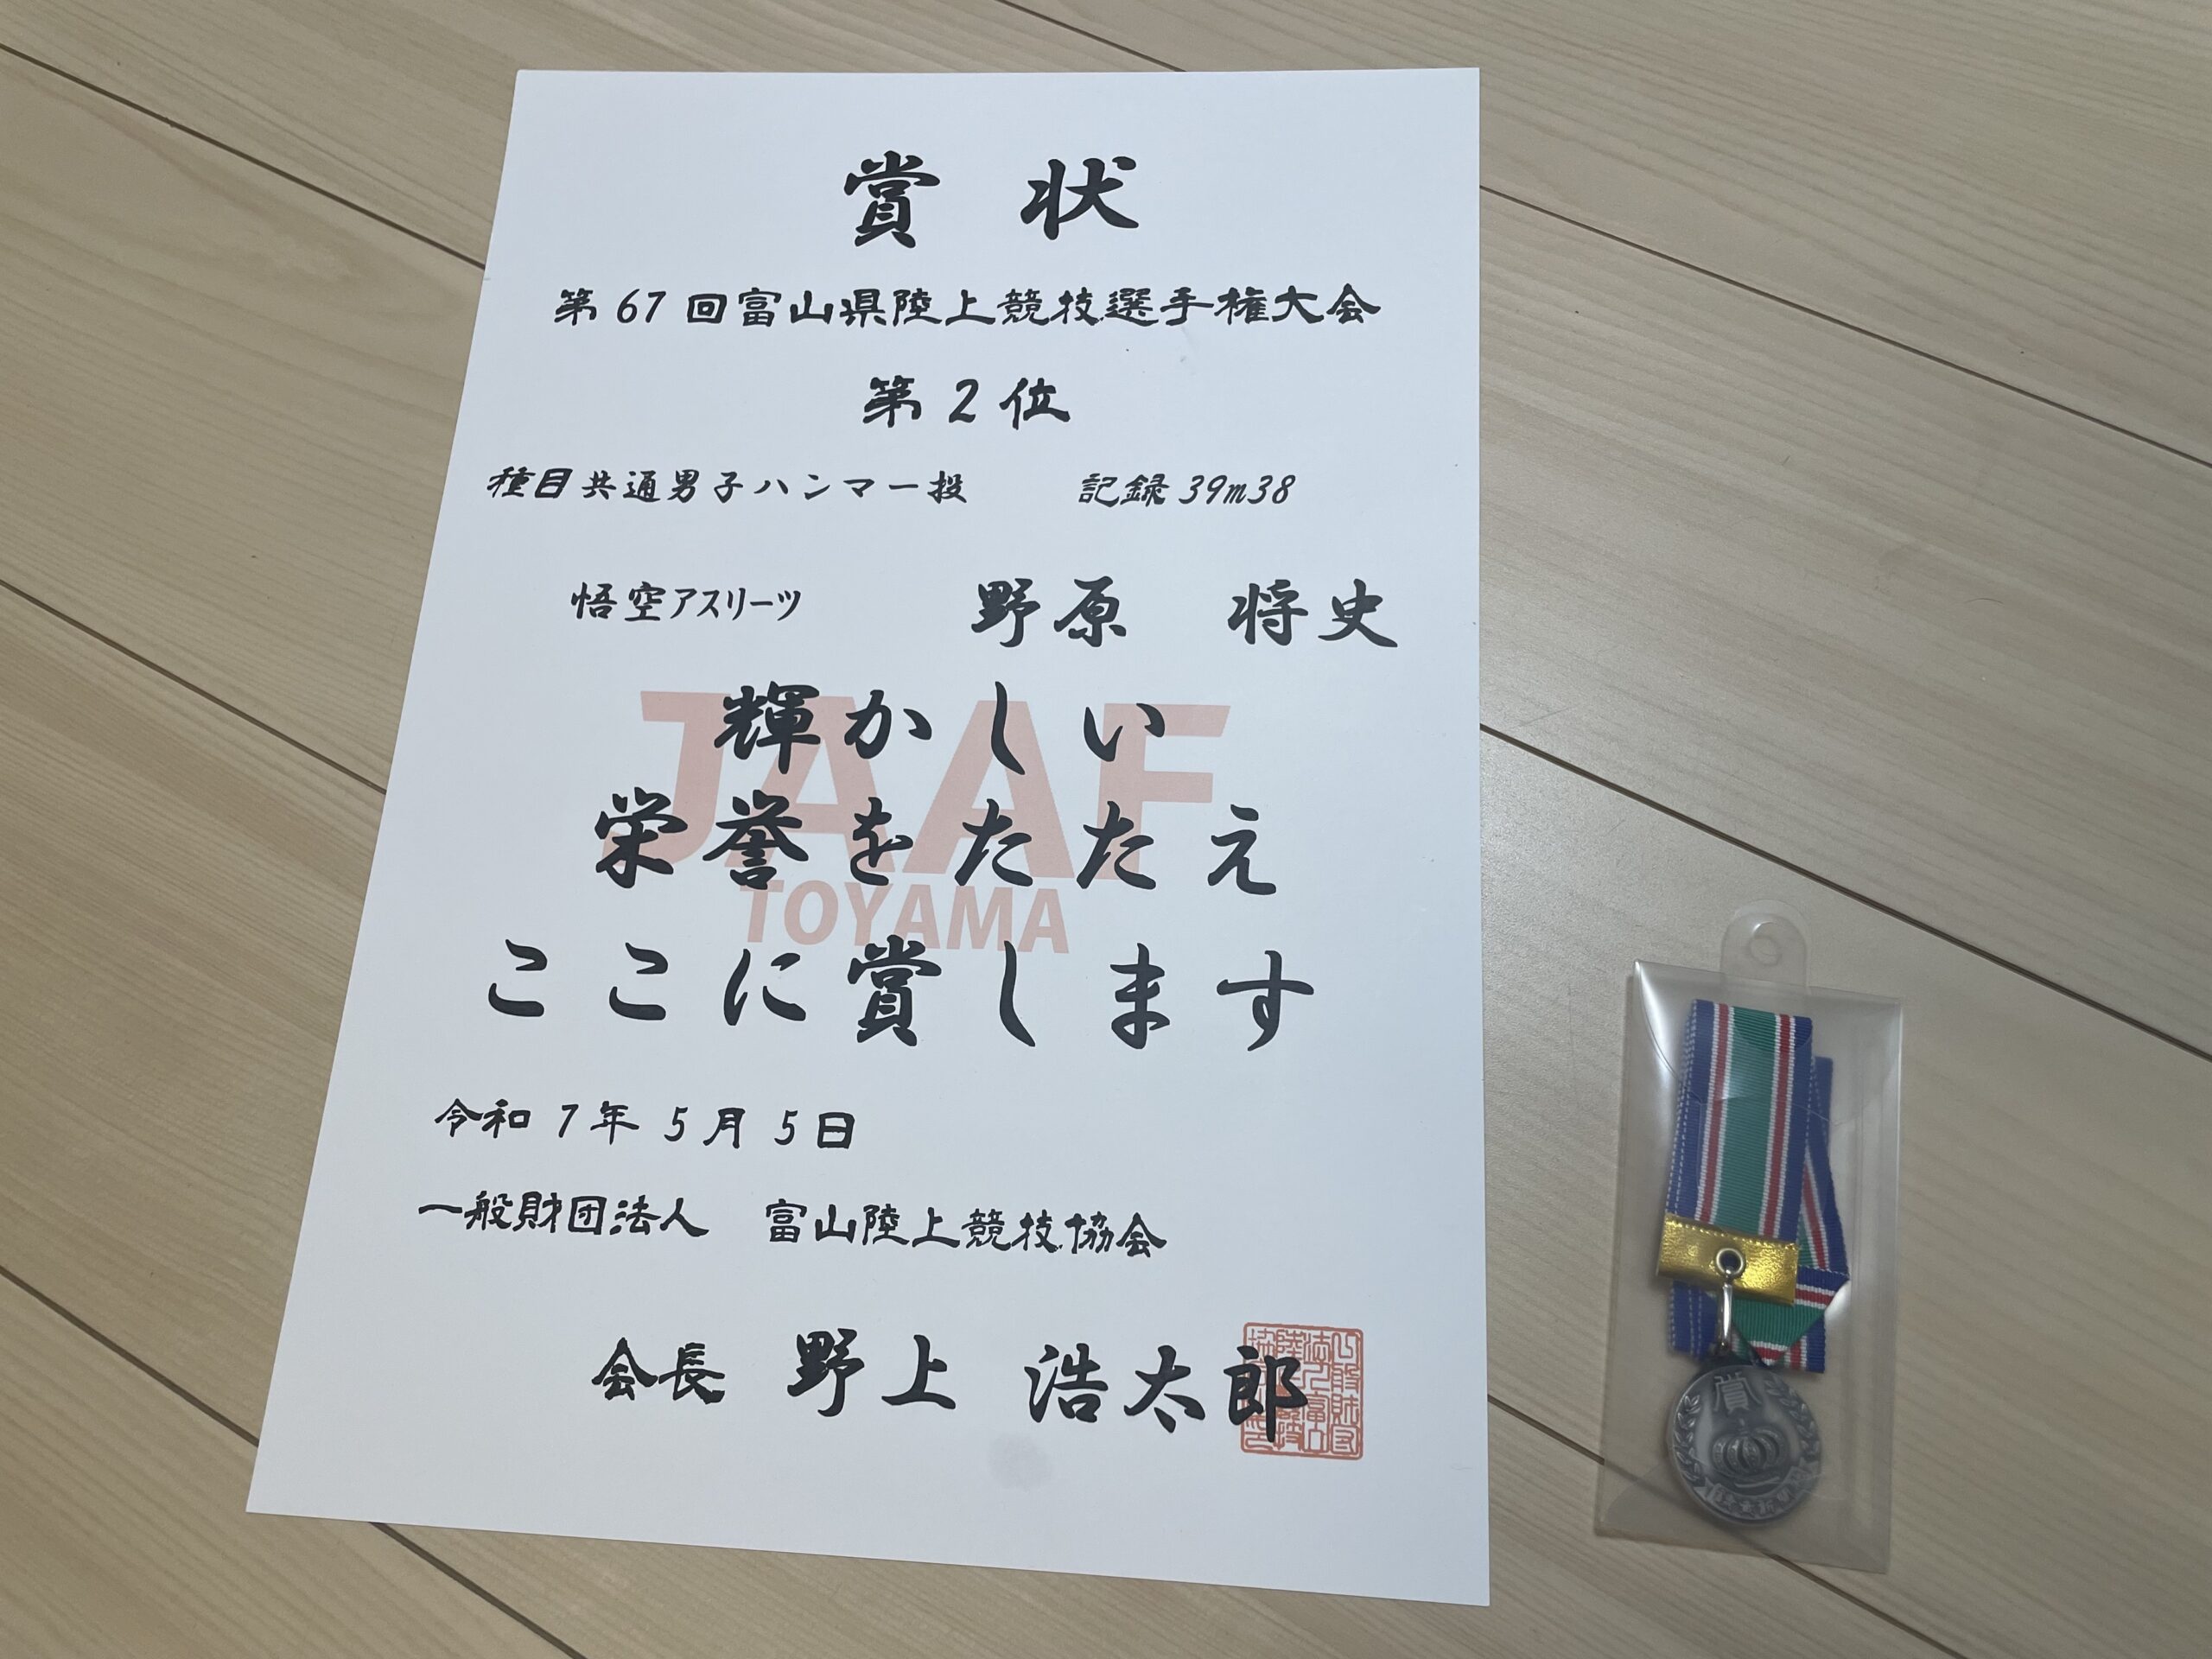 賞状
第67回富山県陸上競技選手権大会
第2位
種目共通男子ハンマー投 記録39m38
悟空アスリーツ 野原 将史
JAAF
TOYAMA
輝かしい
栄誉をたたえ
ここに賞します
令和7年5月5日
一般財団法人 富山陸上競技協会
会長 野上 浩太郎
賞